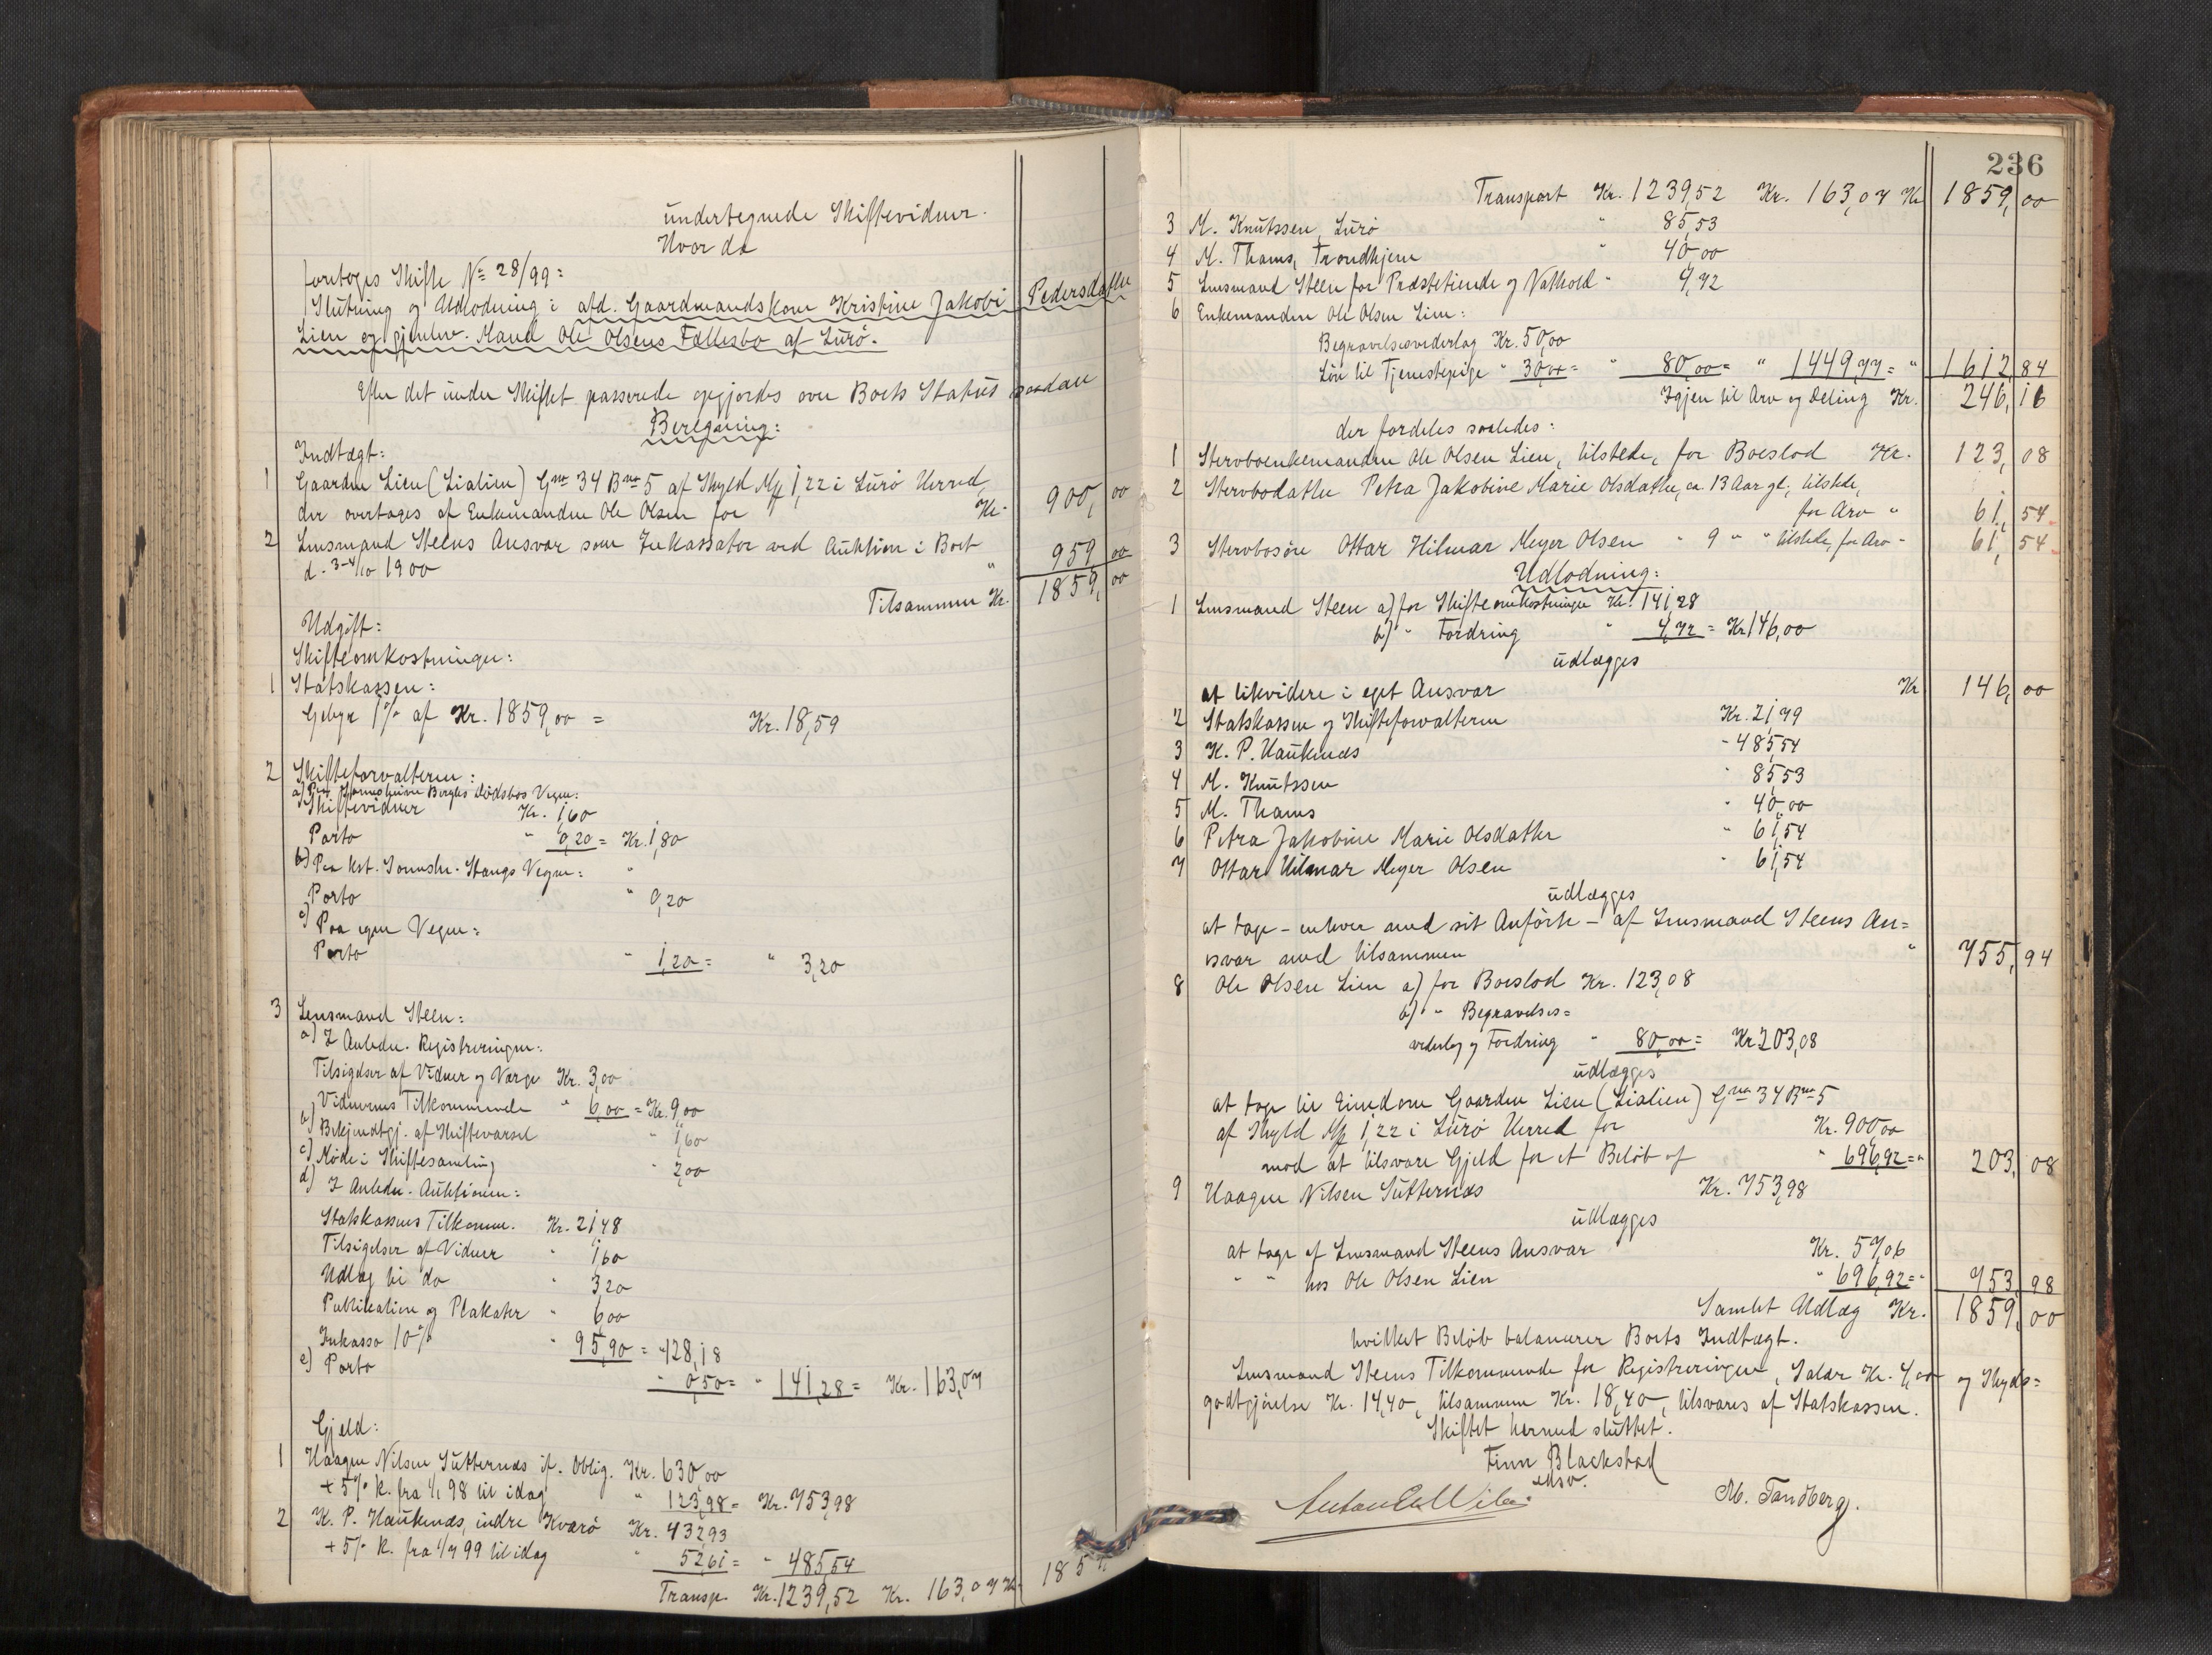 undertegnede Skiftevidner.
Hvor da
foretoges Skifte No 28/99:
Slutning og Udlodning i afd. Gaardmandskone Kristine Jakobi Pedersdatter
Lien og gjenlev. Mand Ole Olsens Fællesbo af Lurö.
Efter det under Skiftet passerede opgjordes over Boets Status saadan
Beregning:
Indtægt:
1 Gaarden Lien (Lialien) Gno 34 Bno 5 af Skyld Mk 1,22 i Lurö Herred,
der overtages af Enkemanden Ole Olsen for Kr. 900,00
2 Lensmand Steens Ansvar som Inkassator ved Auktion i Boet
d. 3-4/10 1900 " 959,00
Tilsammen Kr. 1859,00
Udgift:
Skifteomkostninger:
1 Statskassen:
Gebyr 1% af Kr. 1859,00 = Kr. 18,59
2 Skifteforvalteren:
a) Paa Sorenskriver Berghs Dödsbos Vegne:
Skiftevidner Kr. 1,60
Porto " 0,20 = Kr. 1,80
b) Paa kst. Sorenskr. Stangs Vegne: "
Porto " 0,20
c) Paa egne Vegne:
Porto " 1,20 = " 3,20
3 Lensmand Steen:
a) I Anledn. Registreringen:
Tilsigelser af Vidner og Værge Kr. 3,00
Vidnernes Tilkommende " 6,00 = Kr. 9,00
b) Bekjendtgj. af Skiftevarsel " 1,60
c) Möde i Skiftesamling " 2,00
d) I Anledn. Auktionen:
Statskassens Tilkomm. Kr. 21,48
Tilsigelser af Vidner " 1,60
Udlæg til do " 3,20
Publikation og Plakater " 6,00
Inkasso 10% " 95,90 = " 128,18
e) Porto " 0,50 = " 141,28 = Kr. 163,07
Gjeld:
1 Haagen Nilsen Sutternes if. Oblig. Kr. 630,00
+ 5% R. fra 1/1 98 til idag " 123,98 = Kr. 753,98
2 K. P. Haukenæs, indre Kvarö Kr. 432,93
+ 5% R. fra 1/7 99 til idag " 52,61 = " 485,54
Transp. Kr. 1239,52 Kr. 163,07 Kr. 1859,
236
Transport Kr. 1239,52 Kr. 163,07 Kr 1859,00
3 M. Knutssen, Lurö " 85,53
4 M. Thams, Trondhjem " 40,00
5 Lensmand Steen for Præstetiende og Nathold " 4,72
6 Enkemanden Ole Olsen Lien:
Begravelsesvederlag Kr. 50,00
Lön til Tjenestepige " 30,00 = " 80,00 = " 1449,77 = " 1612,84
Igjen til Arv og Deling Kr. 246,16
der fordeles saaledes:
1 Stervboenkemanden Ole Olsen Lien, tilstede, for Boeslod Kr. 123,08
2 Stervbodatter Petra Jakobine Marie Olsdatter, ca. 13 Aar gl., tilstede,
for Arv " 61,54
3 Stervbosön Ottar Hilmar Meyer Olsen " 9 " " tilstede, for Arv " 61,54
Udlodning:
1 Lensmand Steen a) for Skifteomkostninger Kr. 141,28
b) " Fordring " 4,72 = Kr 146,00
udlægges
at likvidere i eget Ansvar Kr 146,00
2 Statskassen og Skifteforvalteren Kr. 21,79
3 K. P. Haukenæs " 485,54
4 M. Knutssen " 85,53
5 M. Thams " 40,00
6 Petra Jakobine Marie Olsdatter " 61,54
7 Ottar Hilmar Meyer Olsen " 61,54
udlægges
at tage – enhver med sit Anförte – af Lensmand Steens An=
svar med tilsammen " 755,94
8 Ole Olsen Lien a) for Boeslod Kr. 123,08
b) " Begravelses=
vederlag og Fordring " 80,00 = Kr. 203,08
udlægges
at tage til Eiendom Gaarden Lien (Lialien) Gno 34 Bno 5
af Skyld Mk 1,22 i Lurö Herred for Kr. 900,00
mod at tilsvare Gjeld for et Belöb af " 696,92 = " 203,08
9 Haagen Nilsen Sutternæs Kr. 753,98
udlægges
at tage af Lensmand Steens Ansvar Kr. 57,06
" " hos Ole Olsen Lien " 696,92 = " 753,98
Samlet Udlæg Kr. 1859,00
hvilket Belöb balancerer Boets Indtægt.
Lensmand Steens Tilkommende for Registreringen, Salær Kr. 4,00 og Skyds=
godtgjörelse Kr. 14,40, tilsammen Kr. 18,40, tilsvares af Statskassen.
Skiftet hermed sluttet.
Finn Blackstad
M. Tandberg.